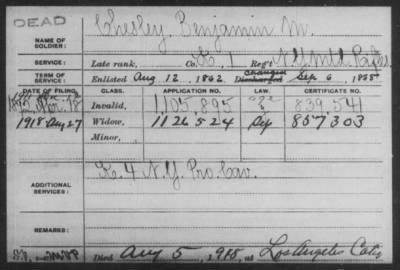 DEAD
NAME OF SOLDIER: Chesley, Benjamin M.
SERVICE: Late rank, Co. K, 1 Reg't N.Y. Mtd. Rifles
TERM OF SERVICE: Enlisted Aug 12, 1862 Discharged changed Sep 6, 1865
DATE OF FILING. CLASS. APPLICATION NO. LAW. CERTIFICATE NO.
Invalid, 1,105,895 839,541
1918 Aug 27 Widow, 1126524 Sep 857303
Minor,
ADDITIONAL SERVICES: K. 4 N.Y. Pro. Cav.
REMARKS:
Died Aug 5, 1918, at Los Angeles Calif